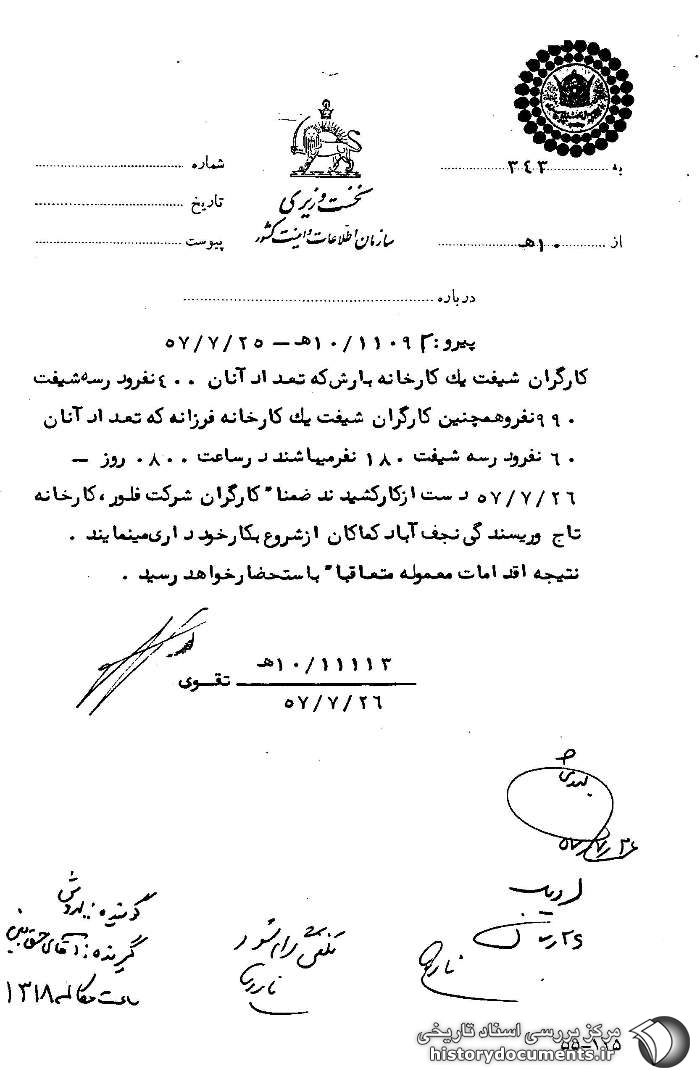 به ۳۴۳
شماره
نخست وزیری
تاریخ
سازمان اطلاعات و امنیت کشور
از ۱۰هـ
پیوست
درباره
پیرو: ۱۰/۱۱۰۹۲هـ – ۵۷/۷/۲۵
کارگران شیفت یك کارخانه بارش که تعداد آنان ۴۰۰ نفر و در سه شیفت
۹۹۰ نفر و همچنین کارگران شیفت یك کارخانه فرزانه که تعداد آنان
۶۰ نفر و در سه شیفت ۱۸۰ نفر میباشند در ساعت ۰۸۰۰ روز –
۵۷/۷/۲۶ دست از کار کشیدند ضمناً کارگران شرکت فلور، کارخانه
تاج وریسندگی نجف آباد کماکان از شروع بکار خودداری مینمایند .
نتیجه اقدامات معموله متعاقباً باستحضار خواهد رسید .
۱۰/۱۱۱۱۳هـ
تقوی
۵۷/۷/۲۶
۵۷/۷/۲۶
گیرنده: آقای
ساعت مکالمه ۱۳۱۸
۵۵-۱۲۵
مرکز بررسی اسناد تاریخی
historydocuments.ir